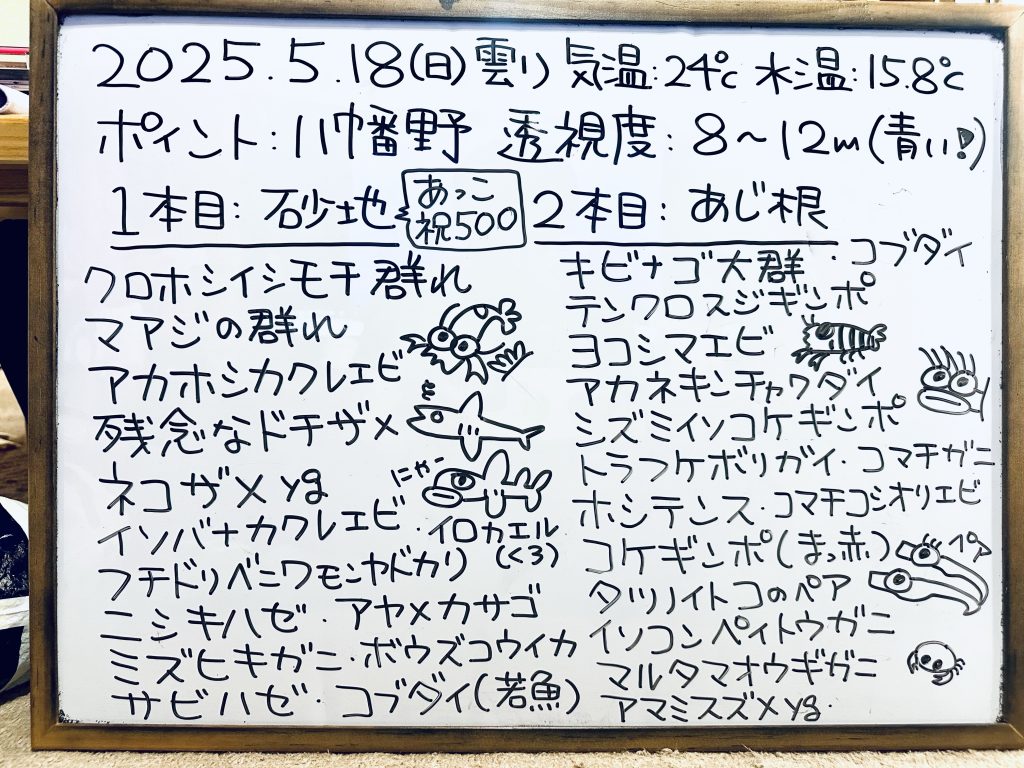 2025.5.18(日)雲り 気温:24℃ 水温:15.8℃
ポイント:八幡野 透視度:8〜12m(青い!)
1本目:砂地
あっこ
祝500
クロホシイシモチ群れ
マアジの群れ
アカホシカクレエビ
残念なドチザメ
ネコザメyg
にゃー
イソバナカクレエビ・イロカエル
(くろ)
フチドリベニワモンヤドカリ
ニシキハゼ・アヤメカサゴ
ミズヒキガニ・ボウズコウイカ
サビハゼ・コブダイ(若魚)
2本目:あじ根
キビナゴ大群・コブダイ
テンクロスジギンポ
ヨコシマエビ
アカネキンチャクダイ
シズミイソコケギンポ
トラフケボリガイ・コマチガニ
ホシテンス・コマチコシオリエビ
コケギンポ(まっ赤)
ペア
タツノイトコのペア
イソコンペイトウガニ
マルタマオウギガニ
アマミスズメyg・